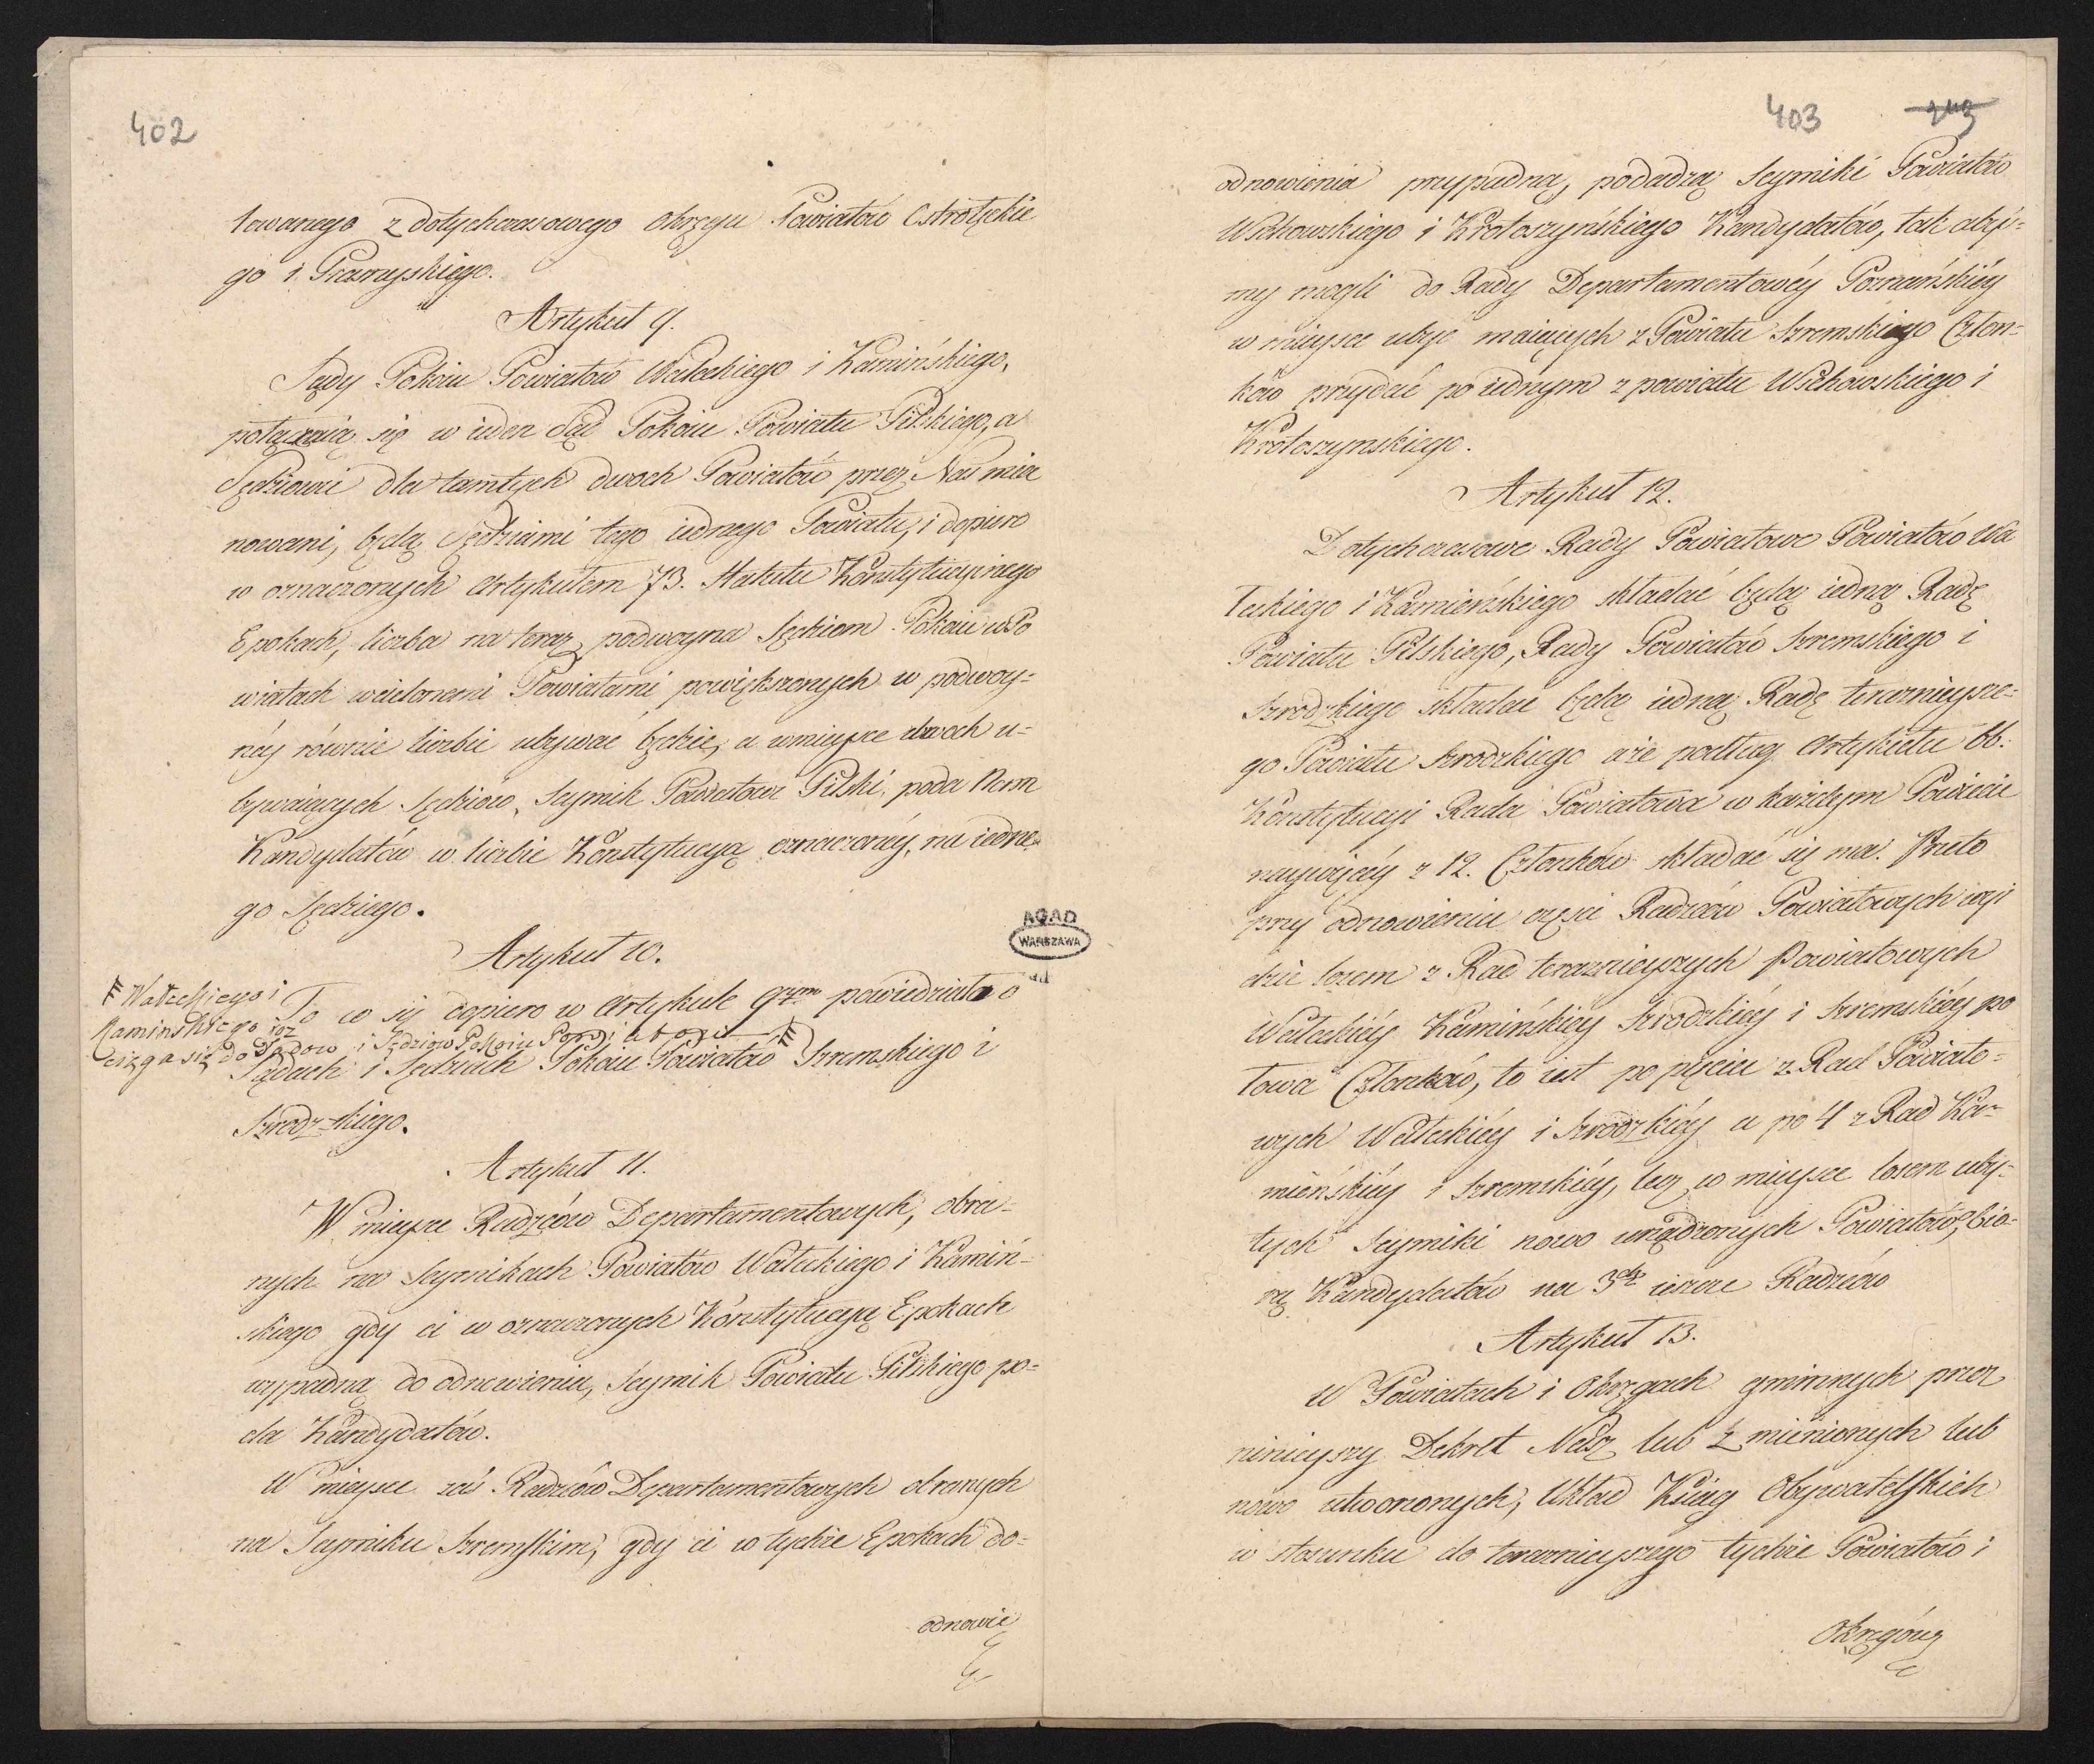 402
towanego z dotychczasowego okręgu Powiatów Ostrołęckie
go i Prasnyskiego.
Artykuł 9.
Sądy Pokoiu Powiatów Wałeckiego i Kamińskiego,
połączaią się w ieden Sąd Pokoiu Powiatu Pilskiego, a
Sędziowie dla tamtych dwoch Powiatów przez Nas mia
nowani, będą Sędziami tego iednego Powiatu, i dopiero
w oznaczonych Artykułem 73. Statutu Konstytucyinego
Epokach, liczba na teraz podwoyna Sędziom Pokoiu w Po
wiatach wcielonemi Powiatami powiększonych w podwoy-
néy równie liczbie ubywać będzie, a wmieysce dwoch u-
bywaiących Sędziów, Seymik Powiatowy Pilski poda Nam
Kandydatów w liczbie Konstytucyą oznaczonéy, na iedne-
go Sędziego.
Artykuł 10.
Wałeckiego i
Kaminskiego roz
ciąga się do Sądow i Sędziow Pokoiu Powiatow
To co się dopiero w Artykule 9tym powiedziało o
Sądach i Sędziach Pokoiu Powiatów Szremskiego i
Szrodzkiego.
Artykuł 11.
W mieysce Radzców Departamentowych, obra-
nych na Seymikach Powiatów Wałeckiego i Kamiń-
skiego gdy ci w oznaczonych Konstytucyią Epokach
wypadną do odnowienia, Seymik Powiatu Pilskiego po-
da Kandydatów.
W mieysce zaś Radzców Departamentowych obranych
na Seymiku Szremskim, gdy ci w tychże Epokach do-
odnowie
AGAD
WARSZAWA
403
odnowienia przypadną, podadzą Seymiki Powiatów
Wschowskiego i Krotoszyńskiego Kandydatów, tak aby-
my mogli do Rady Departamentowéy Poznańskiéy
w mieysce ubyc maiących z Powiatu Szremskiego Człon-
ków przydać po iednym z powiatu Wschowskiego i
Krotoszynskiego.
Artykuł 12.
Dotychczasowe Rady Powiatowe Powiatów Wa
łeckiego i Kamieńskiego składać będą iedną Radę
Powiatu Pilskiego, Rady Powiatów Szremskiego i
Szrodzkiego składać będą iedną Radę teraznieysze-
go Powiatu Szrodzkiego a że podług Artykułu 66.
Konstytucyi Rada Powiatowa w każdym Powiecie
naywięcéy z 12. Członków składać się ma. Przeto
przy odnowieniu części Radzców Powiatowych wyi
dzie losem z Rad teraznieyszych Powiatowych
Wałeckiéy Kamińskiey Szrodzkiéy i Szremskiéy po
łowa Członków, to iest po pięciu z Rad Powiato-
wych Wałeckiéy i Szrodzkiéy a po 4 z Rad Ka-
mieńskiéy i Szremskiéy, lecz w mieysce losem uby-
tych Seymiki nowo urządzonych Powiatów, obio-
rą Kandydatów na 3ch ieszcze Radzców
Artykuł 13.
W Powiatach i Okręgach gminnych przez
ninieyszy Dekret Nasz lub zmienionych lub
nowo utworzonych, Układ Ksiąg Obywatelskich
w stosunku do teraznieyszego tychże Powiatów i
Okręgów